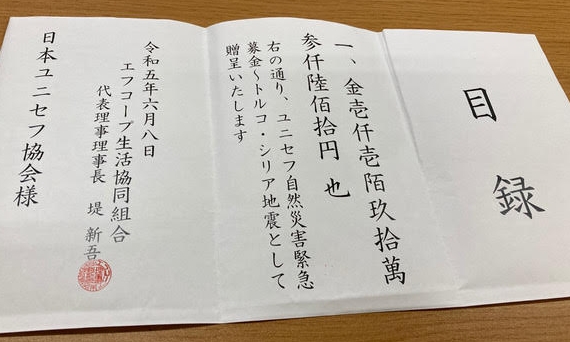 目録
一、金壱仟壱陌玖拾萬
参仟陸佰拾円 也
右の通り、ユニセフ自然災害緊急
募金～トルコ・シリア地震として
贈呈いたします
令和五年六月八日
エフコープ生活協同組合
代表理事理事長 堤 新吾
日本ユニセフ協会様